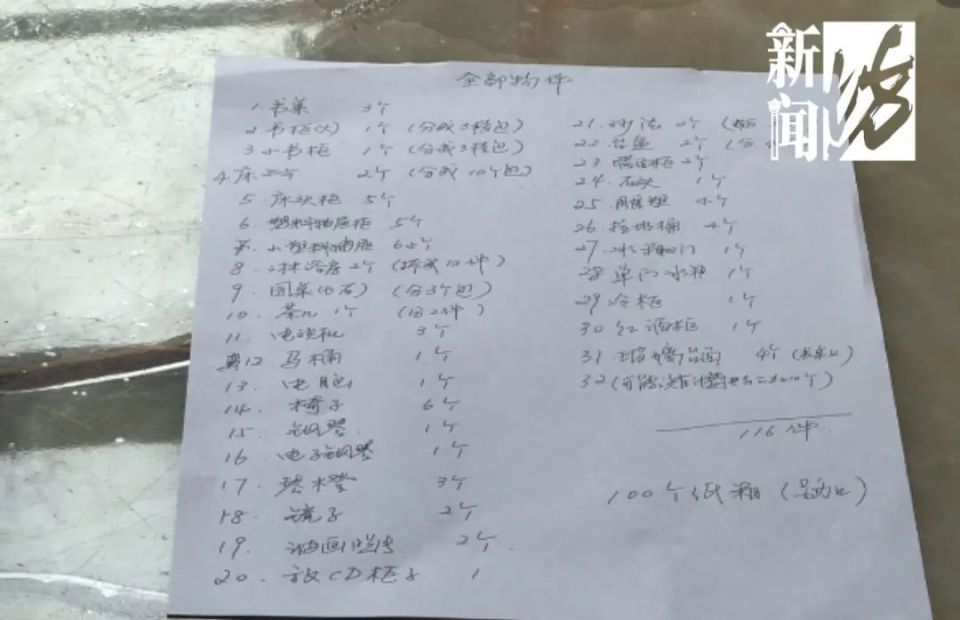 新闻坊
全部物件
1 书桌 3个
2 书柜(大) 1个 (分成3打包)
3 小书柜 1个 (分成3打包)
4. 床 2个 (分成10个包)
5 床头柜 5个
6. 塑料抽屉柜 5个
小塑料抽屉
8. 淋浴房 2个
9. 圆桌(石) (分3个包)
10. 茶几 1个
11. 电视机 3个
12. 马桶 1个
13. 电脑 1个
14. 椅子 6个
15. 钢琴 1个
16 电子钢琴 1个
17. 琴凳 3个
18. 镜子 2个
19. 油画 2个
20. 放CD柜子 1
21. 沙发 2个
22 2个
23 2个
24. 石头 1个
25. 4个
26. 垃圾桶 4个
27. 冰箱门 1个
28 单门冰箱 1个
29 冷柜 1个
30 红酒柜 1个
31. 玻璃台面 4个
32 (可能
116件
100个纸箱